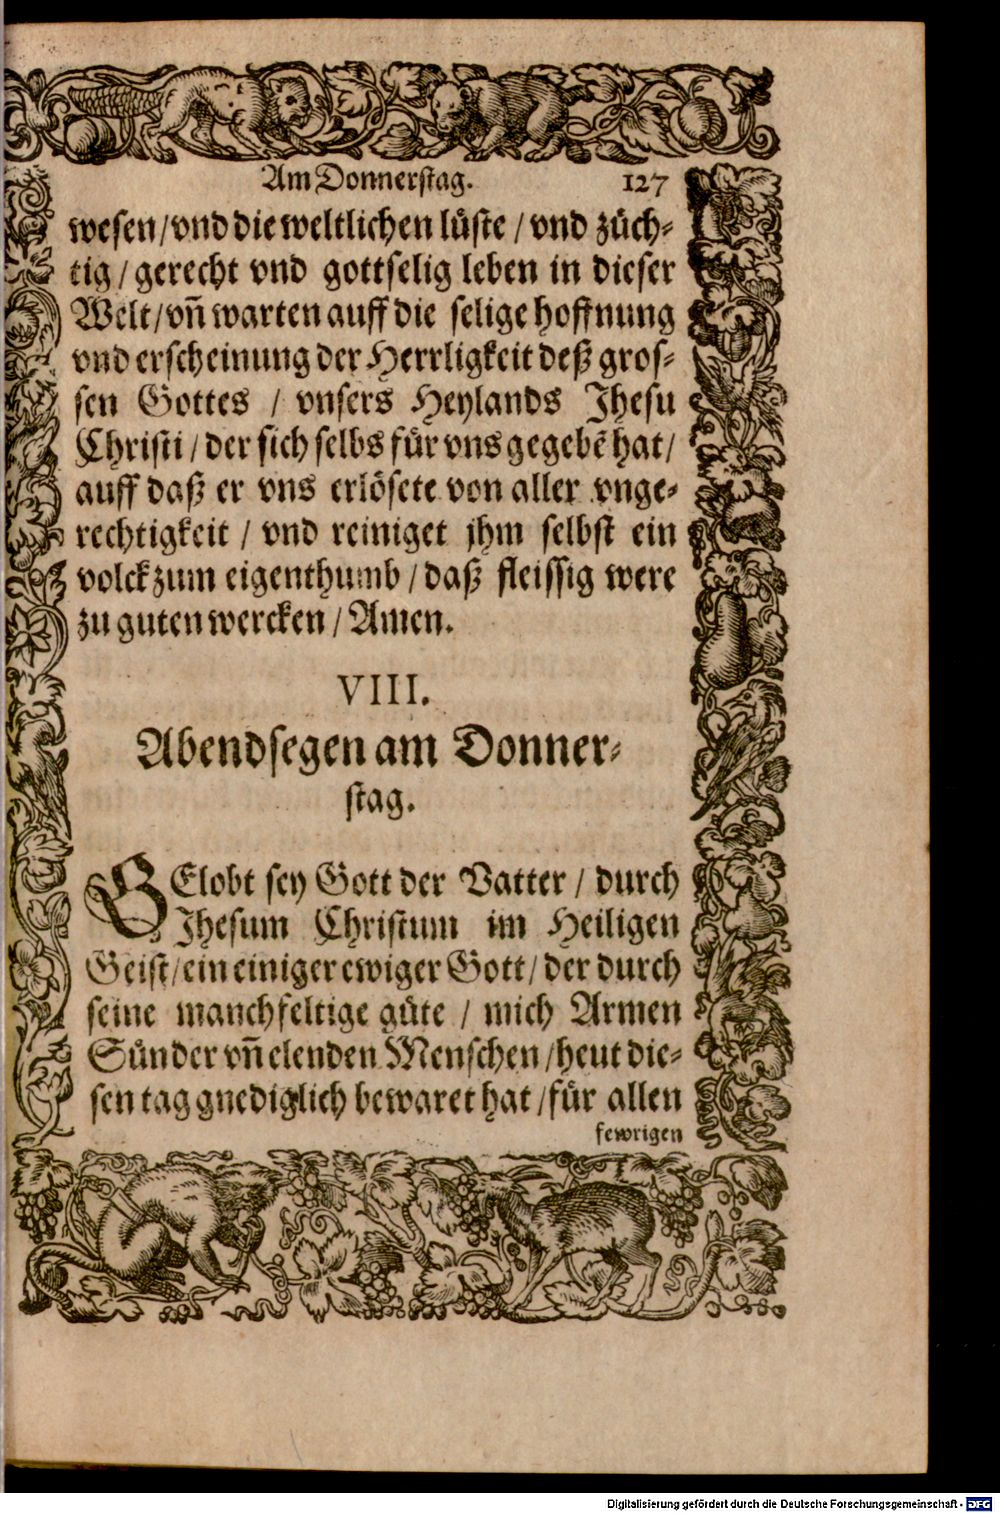 Am Donnerstag. 127
wesen / vnd die weltlichen lüste / vnd züch-
tig / gerecht vnd gottselig leben in dieser
Welt / vñ warten auff die selige hoffnung
vnd erscheinung der Herrligkeit deß gros-
sen Gottes / vnsers Heylands Jhesu
Christi / der sich selbs für vns gegebẽ hat /
auff daß er vns erlösete von aller vnge-
rechtigkeit / vnd reiniget jhm selbst ein
volck zum eigenthumb / daß fleissig were
zu guten wercken / Amen.
VIII.
Abendsegen am Donner-
stag.
GElobt sey Gott der Vatter / durch
Jhesum Christum im Heiligen
Geist / ein einiger ewiger Gott / der durch
seine manchfeltige güte / mich Armen
Sünder vñ elenden Menschen / heut die-
sen tag gnediglich bewaret hat / für allen
fewrigen
Digitalisierung gefördert durch die Deutsche Forschungsgemeinschaft - DFG